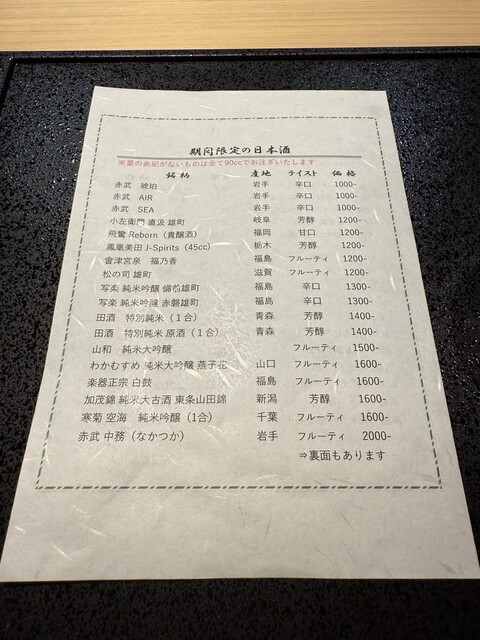 期間限定の日本酒
※量の表記がないものは全て90ccでお注ぎいたします
銘柄 産地 テイスト 価格
赤武 琥珀 岩手 辛口 1000-
赤武 AIR 岩手 辛口 1000-
赤武 SEA 岩手 辛口 1000-
小左衛門 直汲 雄町 岐阜 芳醇 1200-
飛鸞 Reborn（貴醸酒） 福岡 甘口 1200-
鳳凰美田 J-Spirits（45cc） 栃木 芳醇 1200-
會津宮泉 福乃香 福島 フルーティ 1200-
松の司 雄町 滋賀 フルーティ 1200-
写楽 純米吟醸 備前雄町 福島 辛口 1300-
写楽 純米吟醸 赤磐雄町 福島 辛口 1300-
田酒 特別純米（１合） 青森 芳醇 1400-
田酒 特別純米 原酒（１合） 青森 芳醇 1400-
山和 純米大吟醸 フルーティ 1500-
わかむすめ 純米大吟醸 燕子花 山口 フルーティ 1600-
楽器正宗 白鼓 福島 フルーティ 1600-
加茂錦 純米大古酒 東条山田錦 新潟 芳醇 1600-
寒菊 空海 純米吟醸（1合） 千葉 フルーティ 1600-
赤武 中務（なかつか） 岩手 フルーティ 2000-
⇒裏面もあります